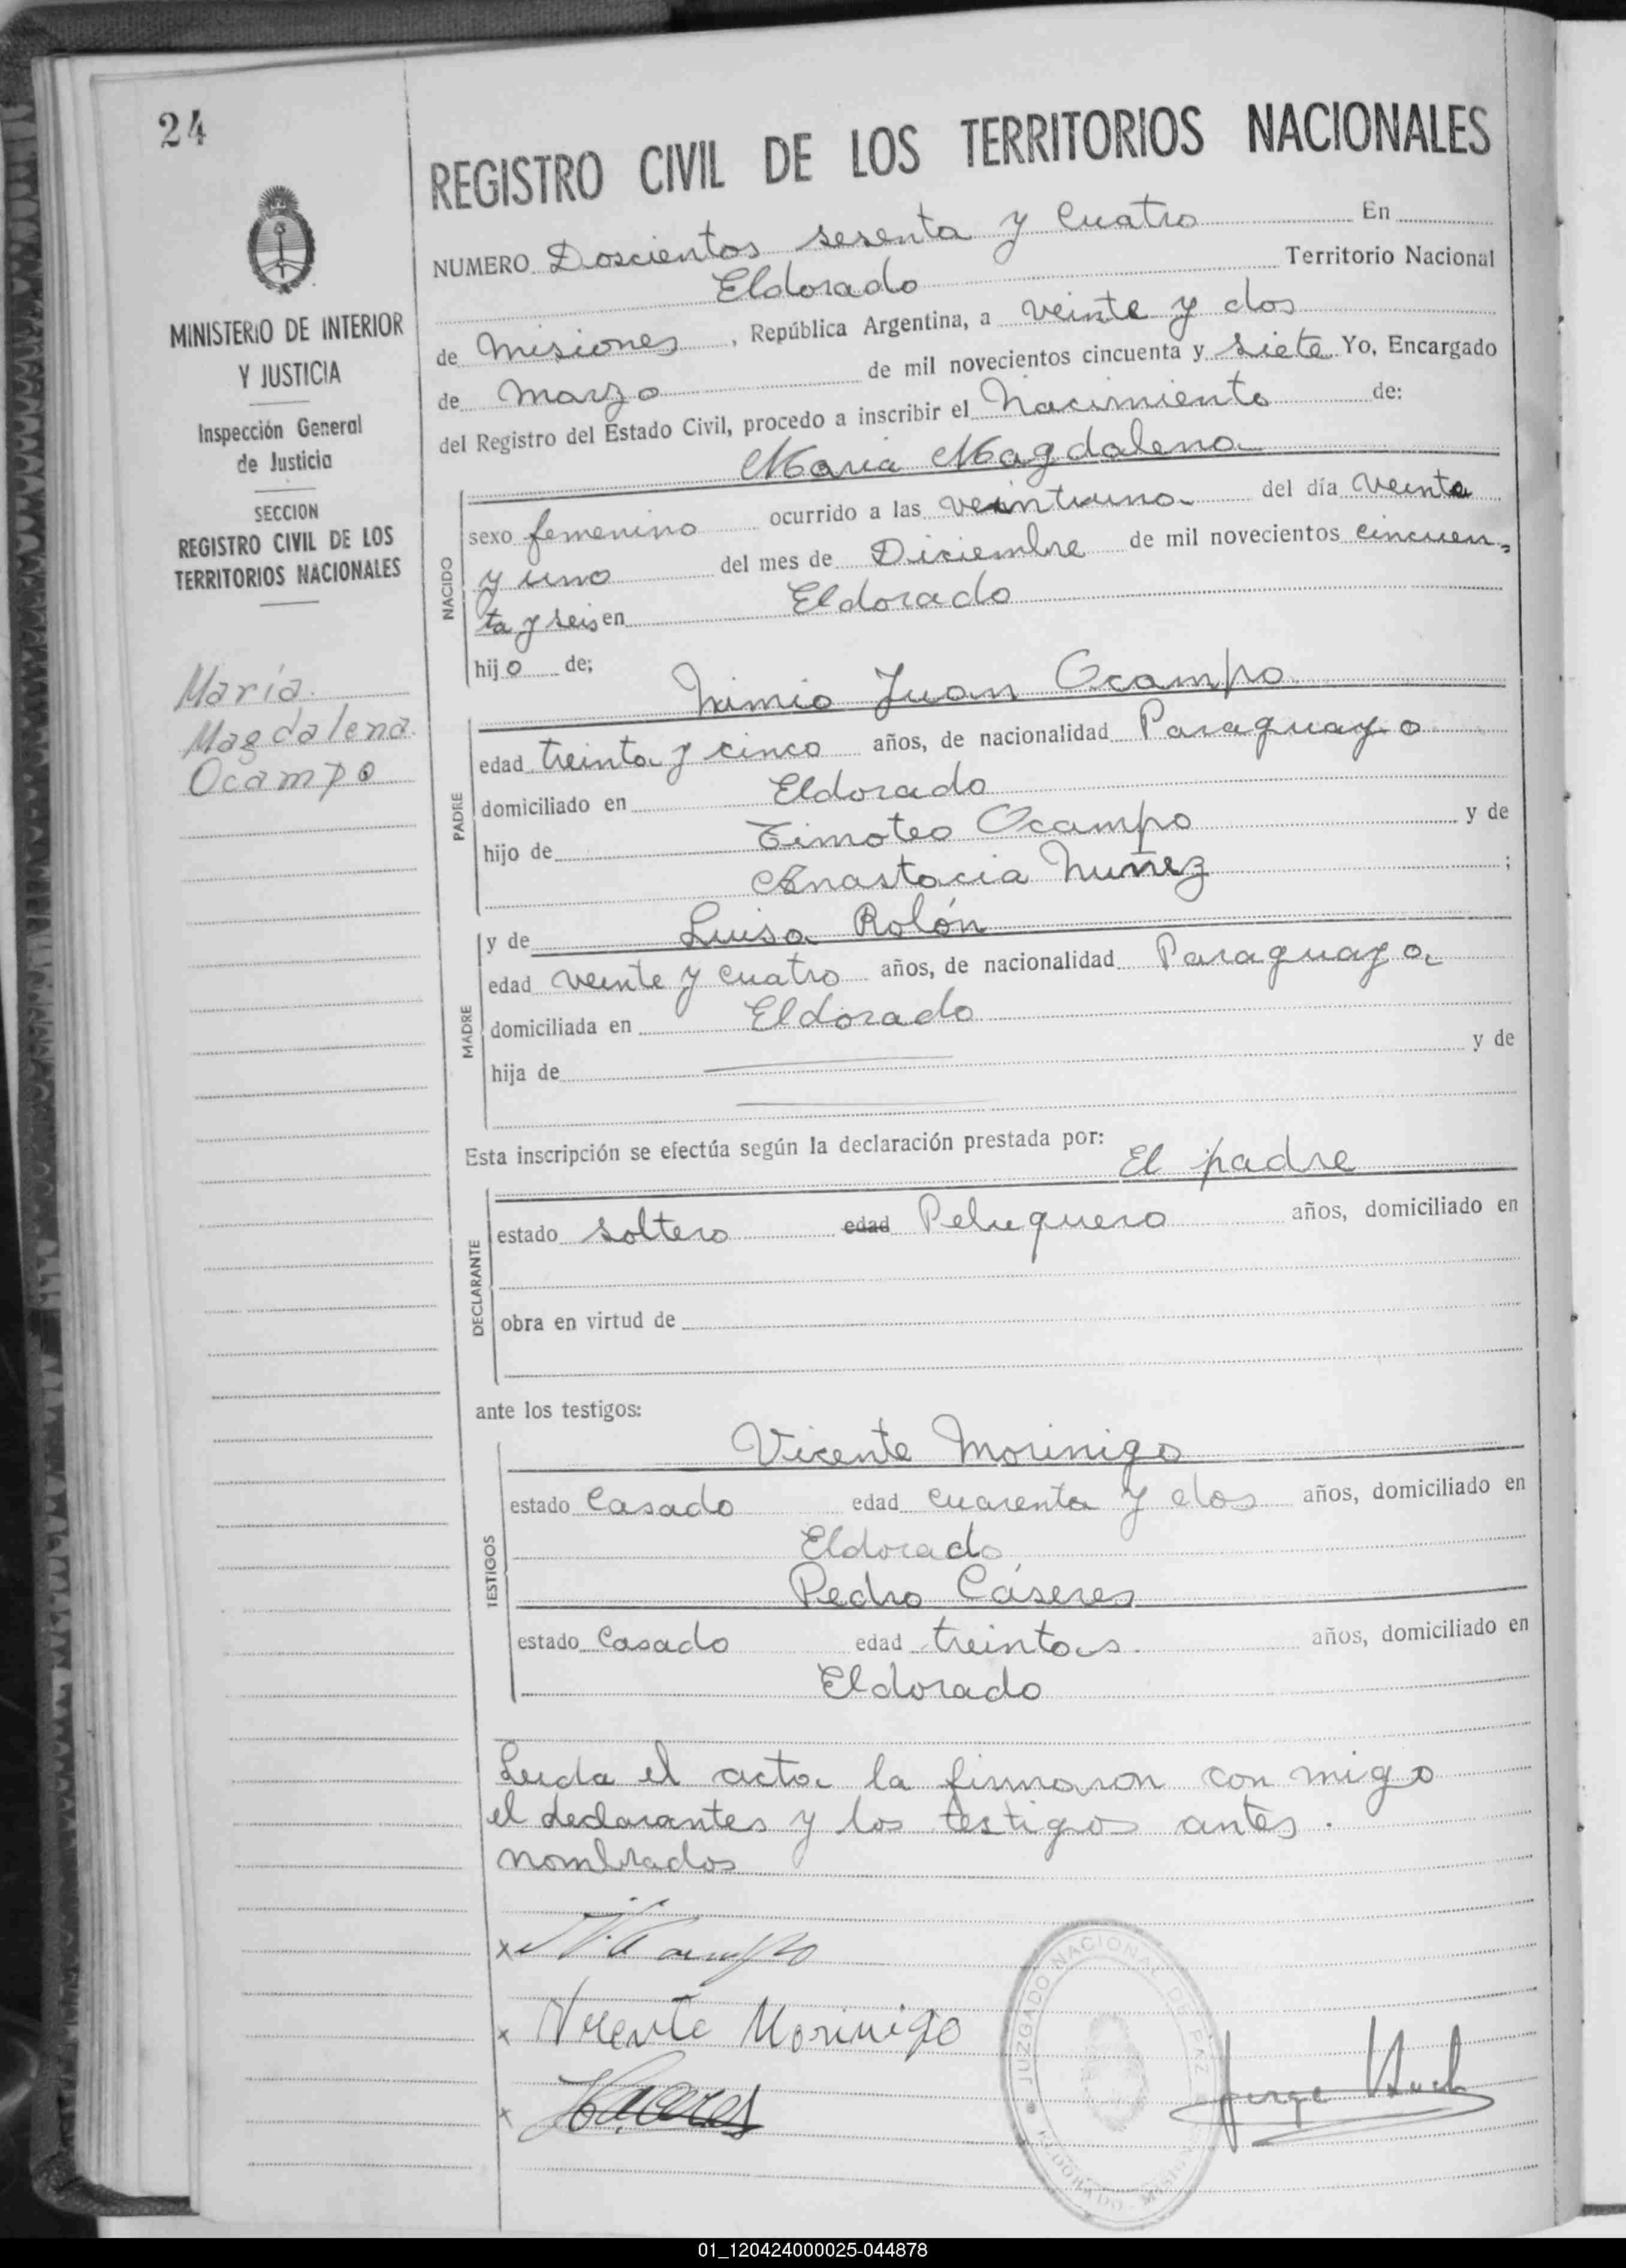 24
MINISTERIO DE INTERIOR
Y JUSTICIA
Inspección General
de Justicia
SECCION
REGISTRO CIVIL DE LOS
TERRITORIOS NACIONALES
María
Magdalena
Ocampo
REGISTRO CIVIL DE LOS TERRITORIOS NACIONALES
NUMERO Doscientos sesenta y Cuatro En
Eldorado Territorio Nacional
de Misiones, República Argentina, a veinte y dos
de Marzo de mil novecientos cincuenta y siete Yo, Encargado
del Registro del Estado Civil, procedo a inscribir el Nacimiento de:
Maria Magdalena
NACIDO
sexo femenino ocurrido a las veintiuno del día veinte
y uno del mes de Diciembre de mil novecientos cincuen-
ta y seis en Eldorado
hijo de;
Nimio Juan Ocampo
PADRE
edad treinta y cinco años, de nacionalidad Paraguayo
domiciliado en Eldorado
hijo de Timoteo Ocampo y de
Anastacia Nuñez ;
MADRE
y de Luisa Rolón
edad veinte y cuatro años, de nacionalidad Paraguaya
domiciliada en Eldorado
hija de y de
Esta inscripción se efectúa según la declaración prestada por:
El padre
DECLARANTE
estado soltero edad Peluquero años, domiciliado en
obra en virtud de
ante los testigos:
TESTIGOS
Vicente Morinigo
estado Casado edad cuarenta y dos años, domiciliado en
Eldorado
Pedro Cáseres
estado Casado edad treinta años, domiciliado en
Eldorado
Leida el acta la firmaron con migo
el declarantes y los testigos antes.
nombrados
x N. Ocampo
x Vicente Morinigo
x Caceres
JUZGADO NACIONAL DE PAZ
ELDORADO - MISIONES
Jorge
01_120424000025-044878